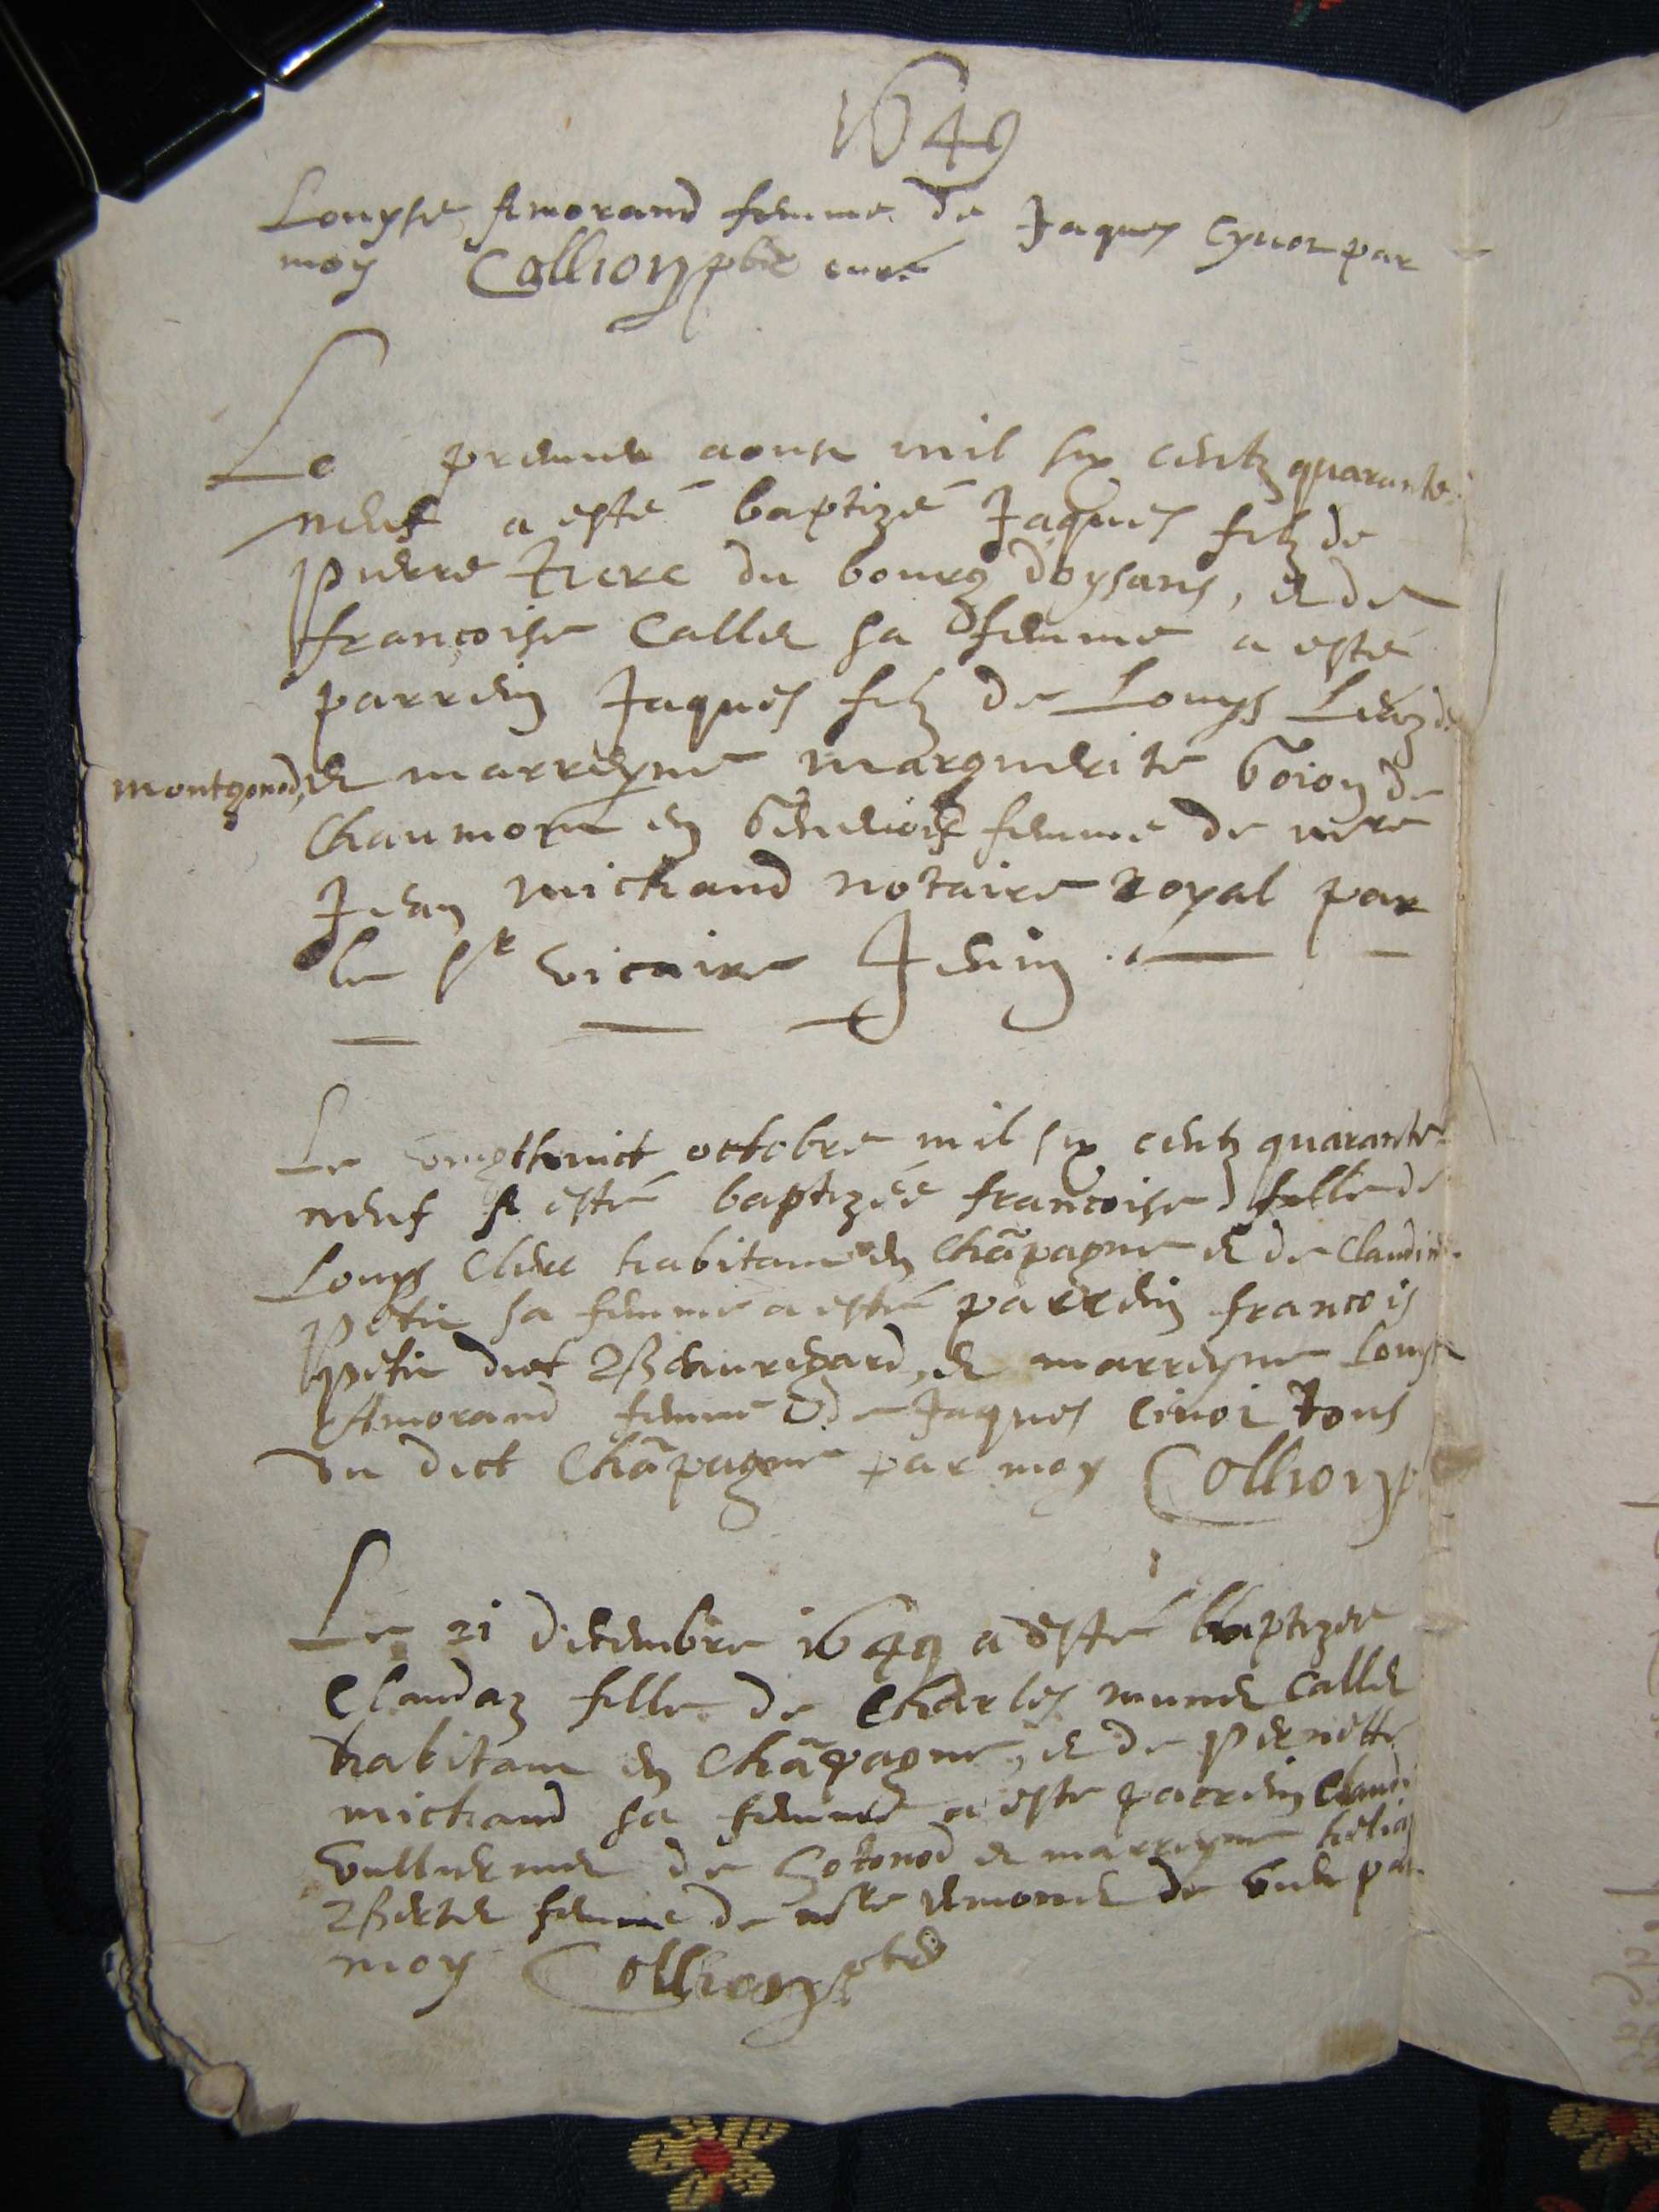 1649
Louyse Amorand femme de Jaques Cynot par
moy Collion pbre curé
Le premier aoust mil six centz quarante
neuf a esté baptizé Jaques filz de
Pierre du bourg d'oysans, et de
françoise Callet sa femme a esté
parrein Jaques filz de Louys de
montgonod, et marreyne marguerite de
Chaumont en femme de
Jean michaud notaire royal par
le Sr vicaire
Le vingthuict octobre mil six centz quarante
neuf A esté baptizée francoise fille de
Louys Clerc habitant en Chãpagne et de Claudine
Petit sa femme a esté parrein francois
Petit dict Beauregard, et marreyne Louyse
Amorand femme de Jaques Cinot tous
du dict Chãpagne par moy Collion p
Le 21 décembre 1649 a esté baptizée
Claudaz fille de Charles Callet
habitant en Chãpagne, et de Pernette
michaud sa femme a este parrein
de Sotonod et marreyne
femme de de par
moy Collion pbre